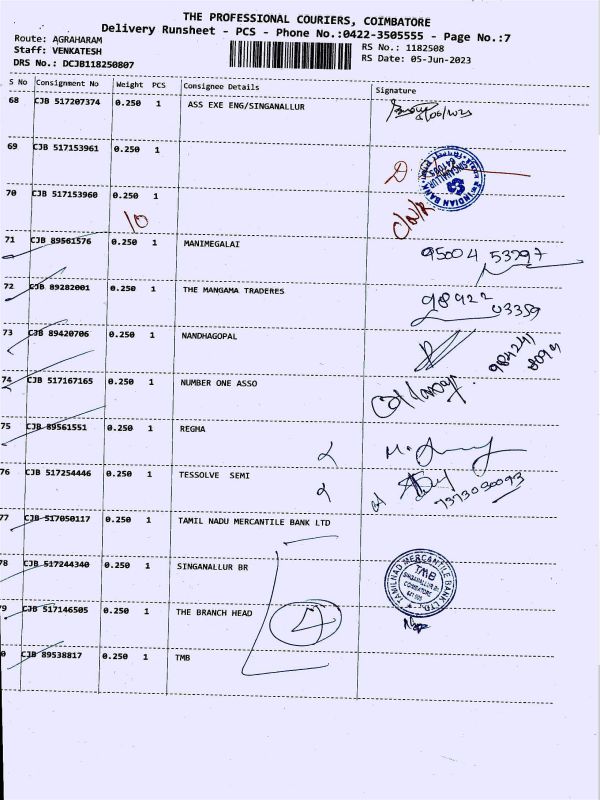 THE PROFESSIONAL COURIERS, COIMBATORE
Delivery Runsheet - PCS - Phone No.:0422-3505555 - Page No.:7
Route: AGRAHARAM
RS No.: 1182508
Staff: VENKATESH
RS Date: 05-Jun-2023
DRS No.: DCJB118250807
S No Consignment No Weight PCS Consignee Details Signature
68 CJB 517207374 0.250 1 ASS EXE ENG/SINGANALLUR
69 CJB 517153961 0.250 1
INDIAN BANK
70 CJB 517153960 0.250 1
10
71 CJB 89561576 0.250 1 MANIMEGALAI
95004 53297
72 CJB 89282001 0.250 1 THE MANGAMA TRADERES
98922
03359
73 CJB 89420706 0.250 1 NANDHAGOPAL
74 CJB 517167165 0.250 1 NUMBER ONE ASSO
75 CJB 89561551 0.250 1 REGHA
76 CJB 517254446 0.250 1 TESSOLVE SEMI
7373030093
77 CJB 517050117 0.250 1 TAMIL NADU MERCANTILE BANK LTD
78 CJB 517244340 0.250 1 SINGANALLUR BR
TAMILNAD MERCANTILE BANK LTD.
TMB
SINGANALLUR BR
COIMBATORE
79 CJB 517146505 0.250 1 THE BRANCH HEAD
4
0 CJB 89538817 0.250 1 TMB